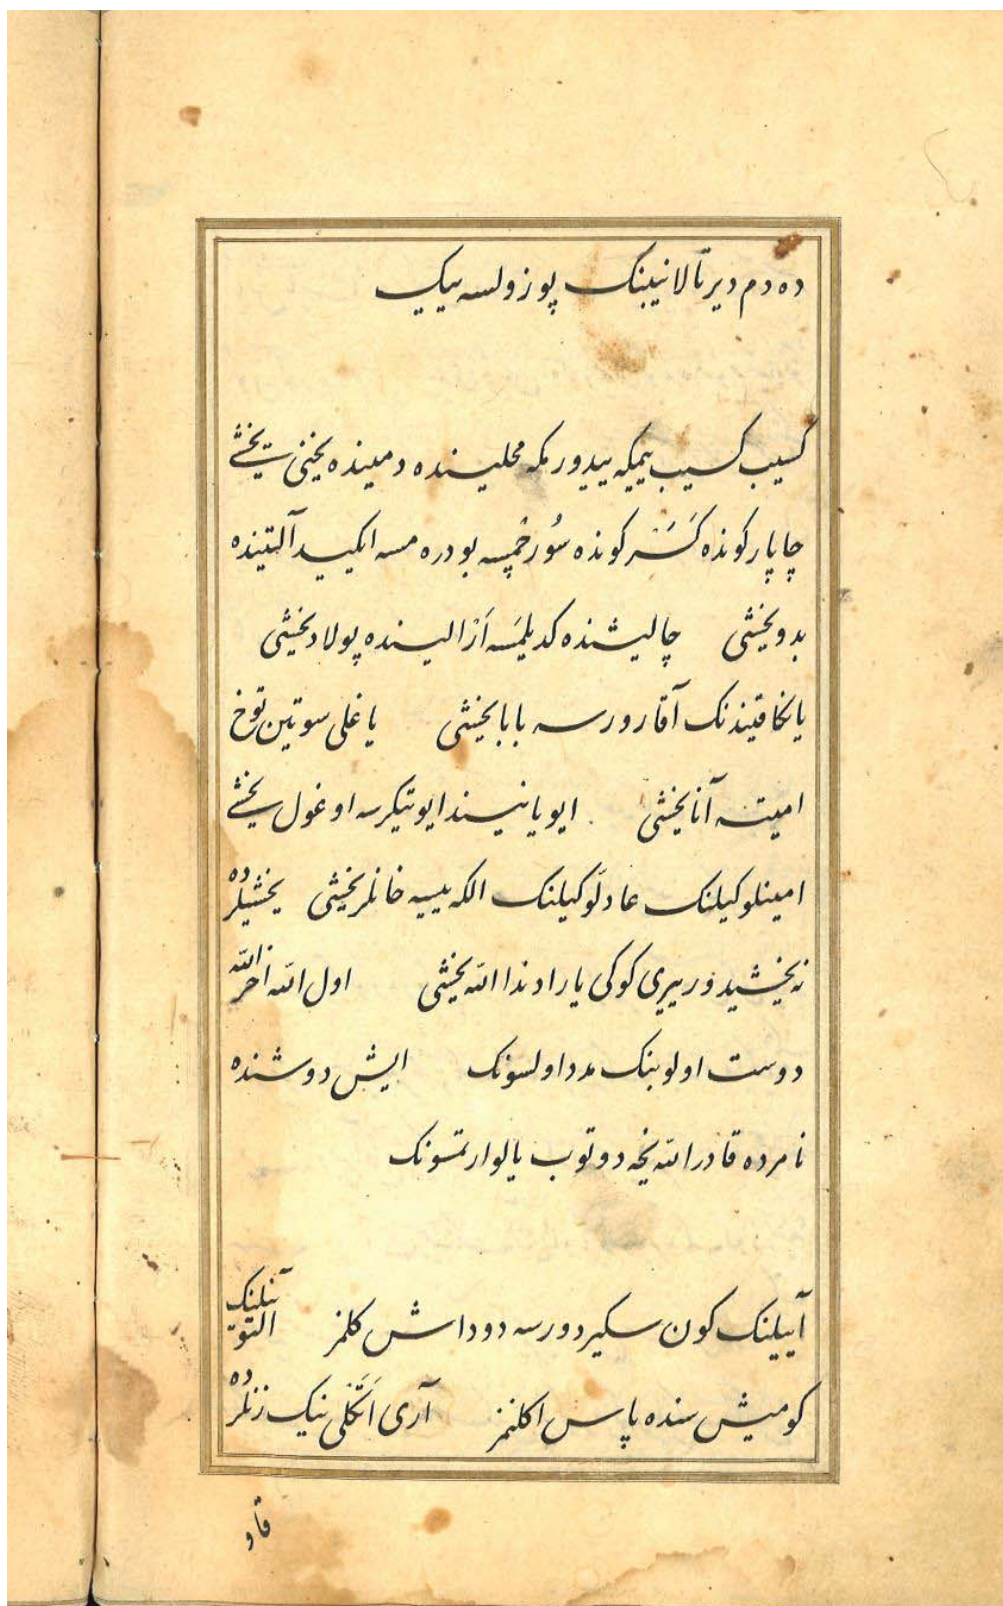 ده دم دیر تالانینبنک پوزولسه بیک
کسیب کسیب یمیکه بیدور مکه محلینده دمینده یخنی یخشی
چاپار کونده کَسَر کونده سُور خمپسه بودره مسه ایکید آلتینده
بدو یخشی چالیشنده کدیلمَسه اَزالینده پولاد یخشی
یانکاقیندنک آقارورسه بابا یخشی یاغلی سوتین توخ
امیتسه آنا یخشی ایو یانیسندا یوتیکرسه اوغول یخشی
امینلوکیلنک عادلَوکیلنک الکه ییسیه خانلر یخشی یخشیلرده
نه یخشیدور ییری کوکی یارادندا الله یخشی اول الله آخر الله
دوست اولوبنک مدد اولسونک ایش دوشنده
نامرده قادر الله یخه دوتوب یالوارتمسونک
آییلنک کون سکیردورسه دوداش کلمز آنلنک التون
کومیش سنده پاس اکلنمز آری اَتَکلی نیک زنلرده
قاو